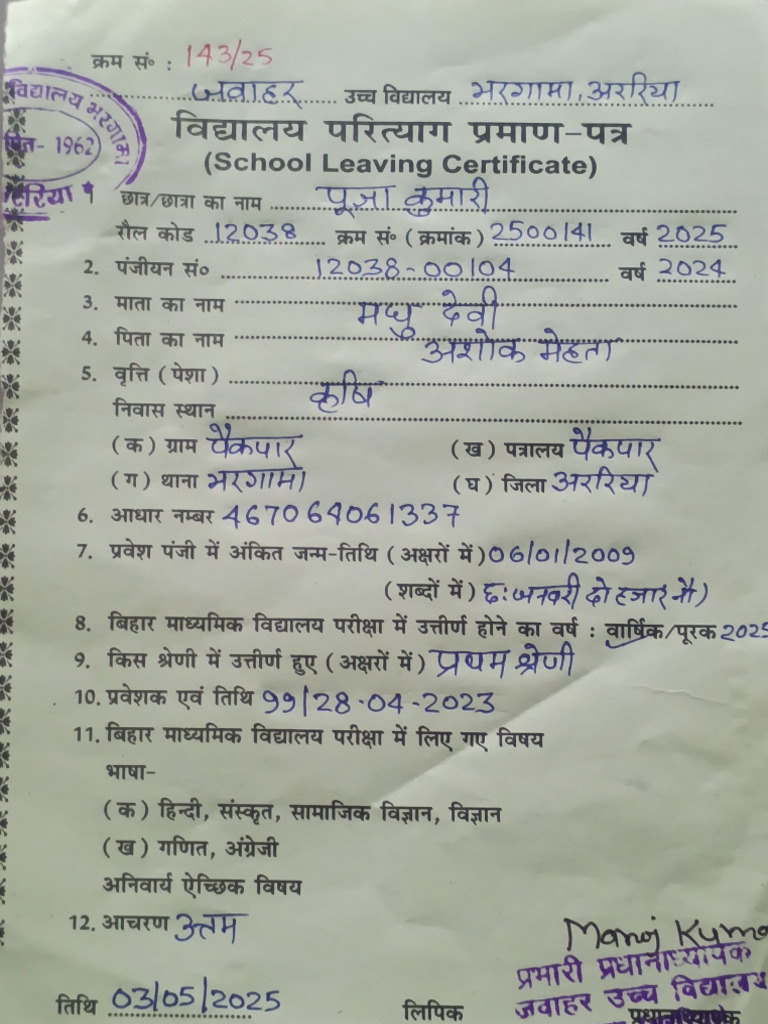 क्रम सं० : 143/25
जवाहर उच्च विद्यालय भरगामा, अररिया
विद्यालय भरगामा
1962
विद्यालय परित्याग प्रमाण-पत्र
(School Leaving Certificate)
1 छात्र/छात्रा का नाम पूजा कुमारी
रौल कोड 12038 क्रम सं० (क्रमांक) 2500141 वर्ष 2025
2. पंजीयन सं० 12038-00104 वर्ष 2024
3. माता का नाम मधु देवी
4. पिता का नाम अशोक मेहता
5. वृत्ति (पेशा) कृषि
निवास स्थान
(क) ग्राम पैकपार (ख) पत्रालय पैकपार
(ग) थाना भरगामा (घ) जिला अररिया
6. आधार नम्बर 467064061337
7. प्रवेश पंजी में अंकित जन्म-तिथि (अक्षरों में) 06/01/2009
(शब्दों में) छ: जनवरी दो हजार नौ)
8. बिहार माध्यमिक विद्यालय परीक्षा में उत्तीर्ण होने का वर्ष : वार्षिक/पूरक 2025
9. किस श्रेणी में उत्तीर्ण हुए (अक्षरों में) प्रथम श्रेणी
10. प्रवेशक एवं तिथि 99/28-04-2023
11. बिहार माध्यमिक विद्यालय परीक्षा में लिए गए विषय
भाषा-
(क) हिन्दी, संस्कृत, सामाजिक विज्ञान, विज्ञान
(ख) गणित, अंग्रेजी
अनिवार्य ऐच्छिक विषय
12. आचरण उत्तम
Manoj Kuma
प्रभारी प्रधानाध्यापक
जवाहर उच्च विद्यालय
तिथि 03/05/2025 लिपिक प्रधानाध्यापक